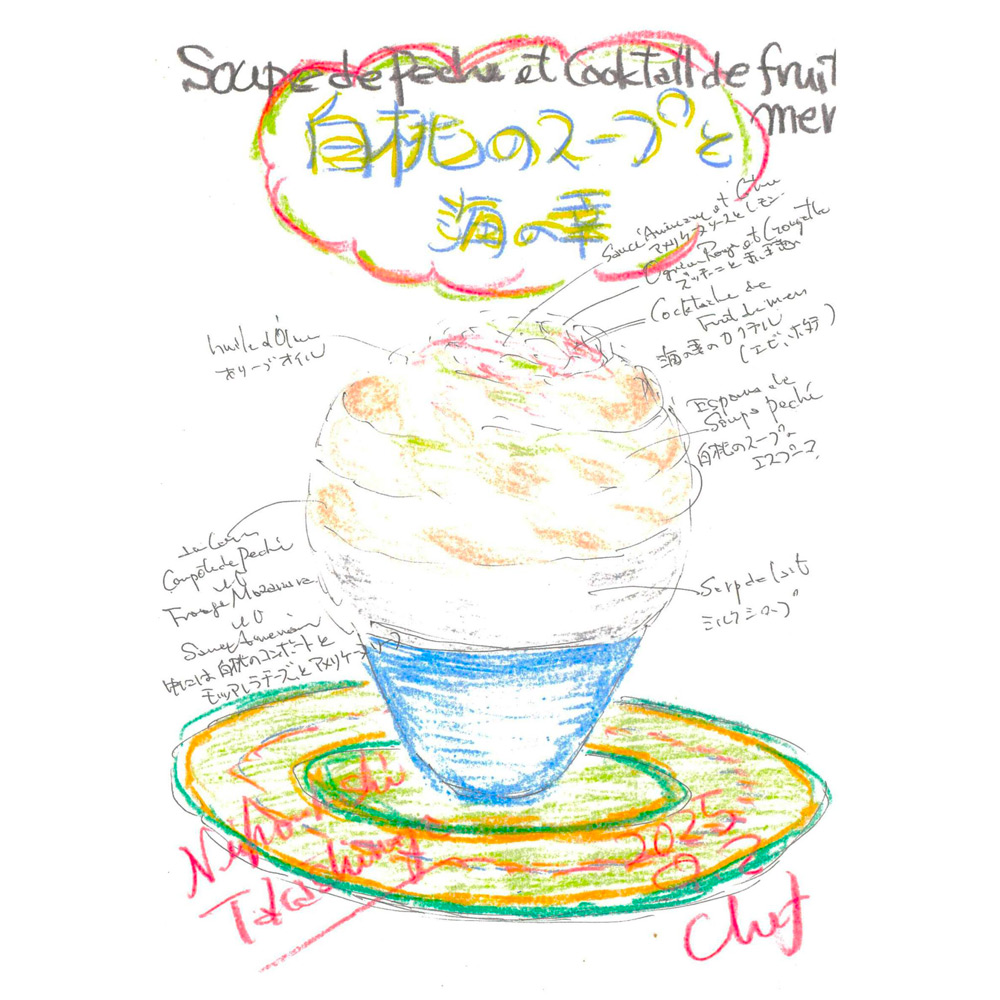 Soupe de peche et Cocktail de fruit
mer
白桃のスープと
海の幸
アメリケーヌソースとレモン
ズッキーニと赤玉葱
Cocktache de
Fruit de mer
海の幸のカクテル
(エビ、ホタテ)
huile d'Olive
オリーブオイル
Espouma de
Soupe peché
白桃のスープの
エスプーマ
Compôte de Peché
et
Sauce
中には白桃のコンポートと
モッツァレラチーズとアメリケーヌソース
Sirop de Lait
ミルクシロップ
Nihonbashi
Takashimaya
2025
Chef